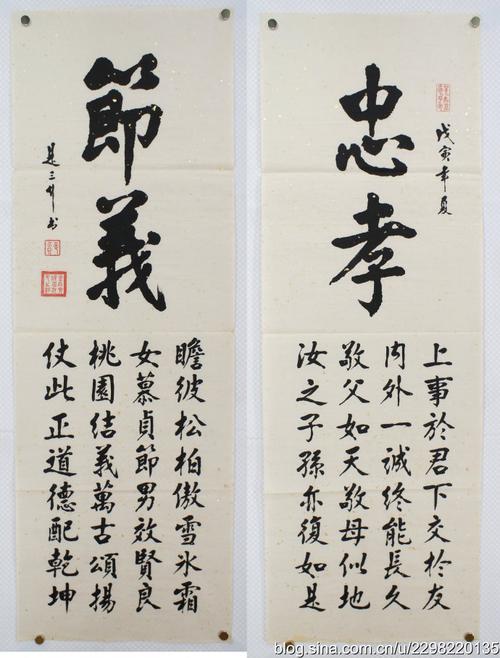 戊寅年夏
忠孝
上事於君下交於友
内外一誠終能長久
敬父如天敬母似地
汝之子孫亦復如是
節義
瞻彼松柏傲雪氷霜
女慕貞節男效賢良
桃園結義萬古頌揚
仗此正道德配乾坤
是三升书
blog.sina.com.cn/u/2298220135